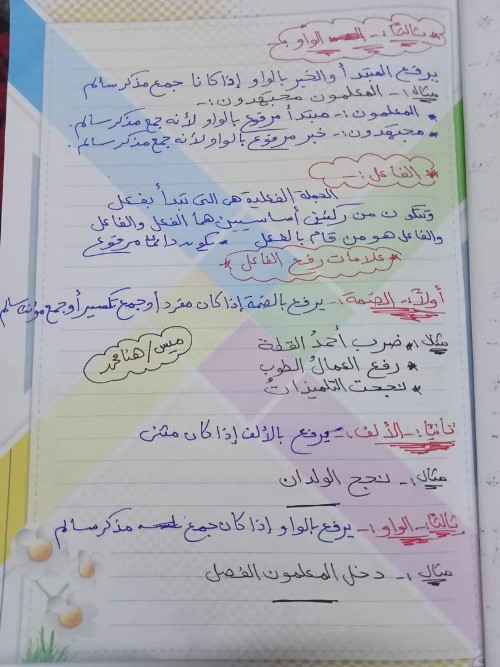 * ثالثًا :- الواو :-
يرفع المبتدأ والخبر بالواو إذا كانا جمع مذكر سالم
مثال :- المعلمون مجتهدون :-
* المعلمون :- مبتدأ مرفوع بالواو لأنه جمع مذكر سالم.
* مجتهدون :- خبر مرفوع بالواو لأنه جمع مذكر سالم.
* الفاعل :-
الجملة الفعلية هى التى تبدأ بفعل
وتتكون من ركنين أساسيين هما الفعل والفاعل
والفاعل هو من قام بالفعل - يكون دائمًا مرفوع
* علامات رفع الفاعل *
أولاً :- الضمة :- يرفع بالضمة إذا كان مفرد أو جمع تكسير أو جمع مؤنث سالم
مثال :* ضرب أحمدُ القطة
* رفع العمالُ الطوب
ميس / هنا محمد
* نجحت التلميذاتُ
ثانيًا :- الألف :- يرفع بالألف إذا كان مثنى
مثال :- نجح الولدان
ثالثًا :- الواو :- يرفع بالواو إذا كان جمع مذكر سالم
مثال :- دخل المعلمون الفصل